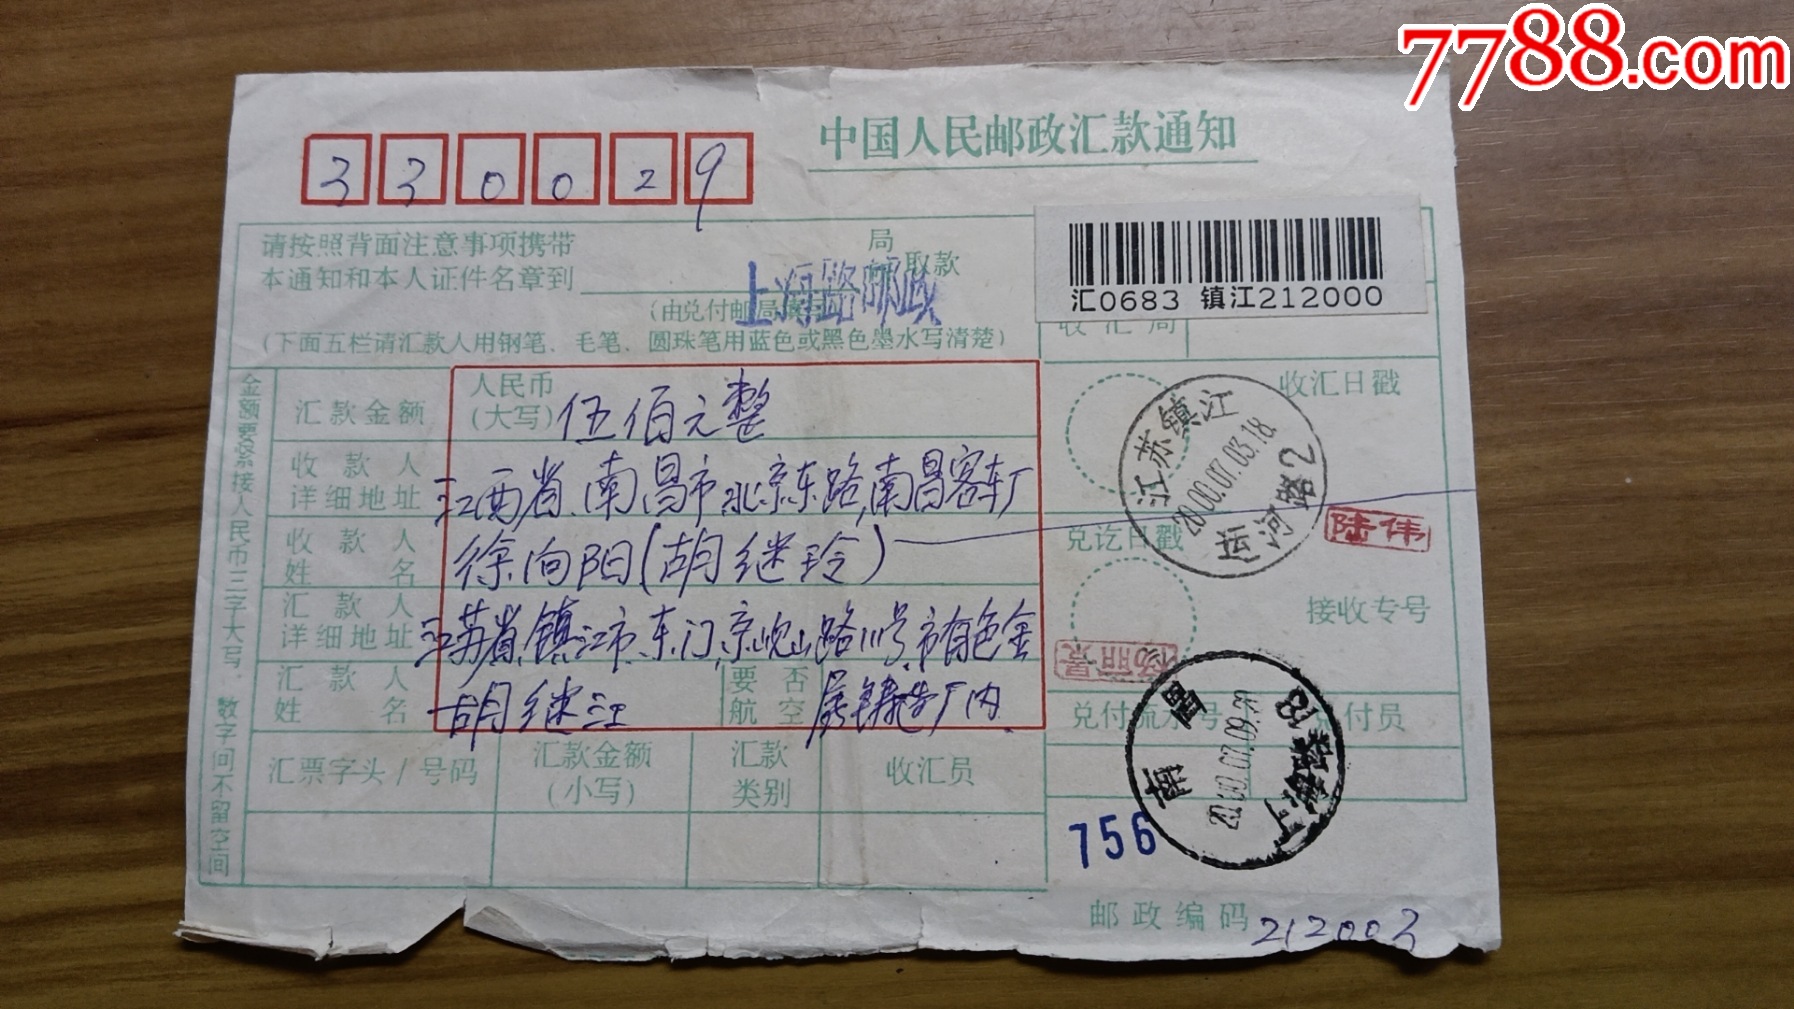 7788.com
中国人民邮政汇款通知
330029
请按照背面注意事项携带
本通知和本人证件名章到
局
取款
上海路邮政
(由兑付邮局填写)
(下面五栏请汇款人用钢笔、毛笔、圆珠笔用蓝色或黑色墨水写清楚)
汇0683 镇江212000
收汇局
金额要紧接人民币三字大写,数字间不留空间
汇款金额
人民币
(大写)
伍佰元整
收款人
详细地址
江西省、南昌市北京东路,南昌客车厂
收款人
姓名
徐向阳(胡继玲)
汇款人
详细地址
江苏省镇江市东门,京岘山路111号市有色金
汇款人
姓名
胡继江
要否
航空
属铸造厂内
汇票字头/号码
汇款金额
(小写)
汇款
类别
收汇员
收汇日戳
江苏镇江
2000.07.03.18
运河路2
兑讫日戳
陆伟
接收专号
兑付流水号
兑付员
南昌
2000.07.09
18
756
邮政编码 212003